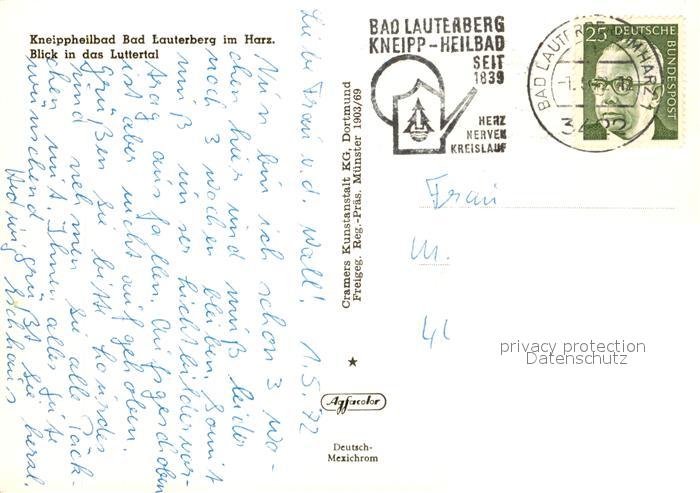 Kneippheilbad Bad Lauterberg im Harz.
Blick in das Luttertal
Liebe Frau v.d. Wall! 1.5.72
Nun bin ich schon 3 Wo-
chen hier und muß leider
noch 3 Wochen bleiben. Somit
muß unser Lichtbildervor-
trag ausfallen. Aufgeschoben
ist aber nicht aufgehoben.
Grüßen Sie bitte
und nehmen Sie alle Päck-
chen mit. Ihnen alles Gute
wünschend grüßt Sie herzl.
Hedwig
Cramers Kunstanstalt KG, Dortmund
Freigeg. Reg.-Präs. Münster 1903/69
Agfacolor
Deutsch-
Mexichrom
BAD LAUTERBERG
KNEIPP-HEILBAD
SEIT
1839
HERZ
NERVEN
KREISLAUF
BAD LAUTERBERG IM HARZ
3422
25 DEUTSCHE
BUNDESPOST
Frau
M.
privacy protection
Datenschutz